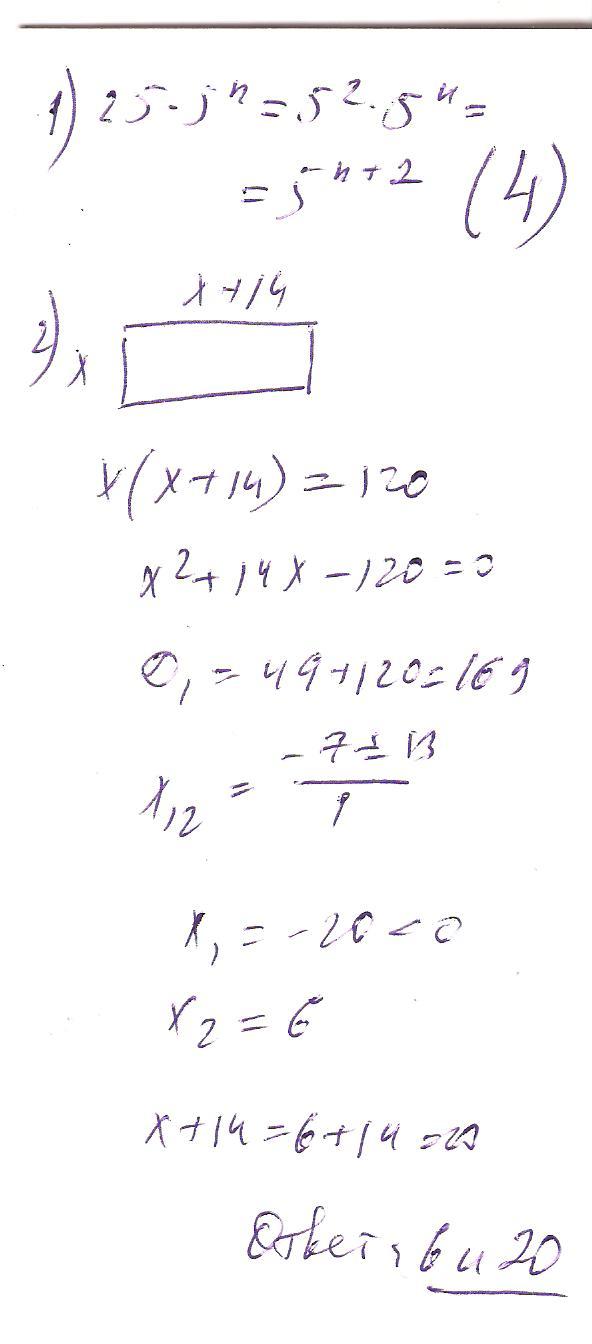 1) 25·5ⁿ = 5²·5ⁿ =
= 5ⁿ⁺² (4)
2)
x+14
x
x(x+14) = 120
x²+14x-120=0
D₁ = 49+120=169
x₁₂ = (-7±13)/1
x₁ = -20 < 0
x₂ = 6
x+14=6+14=20
Ответ: 6 и 20